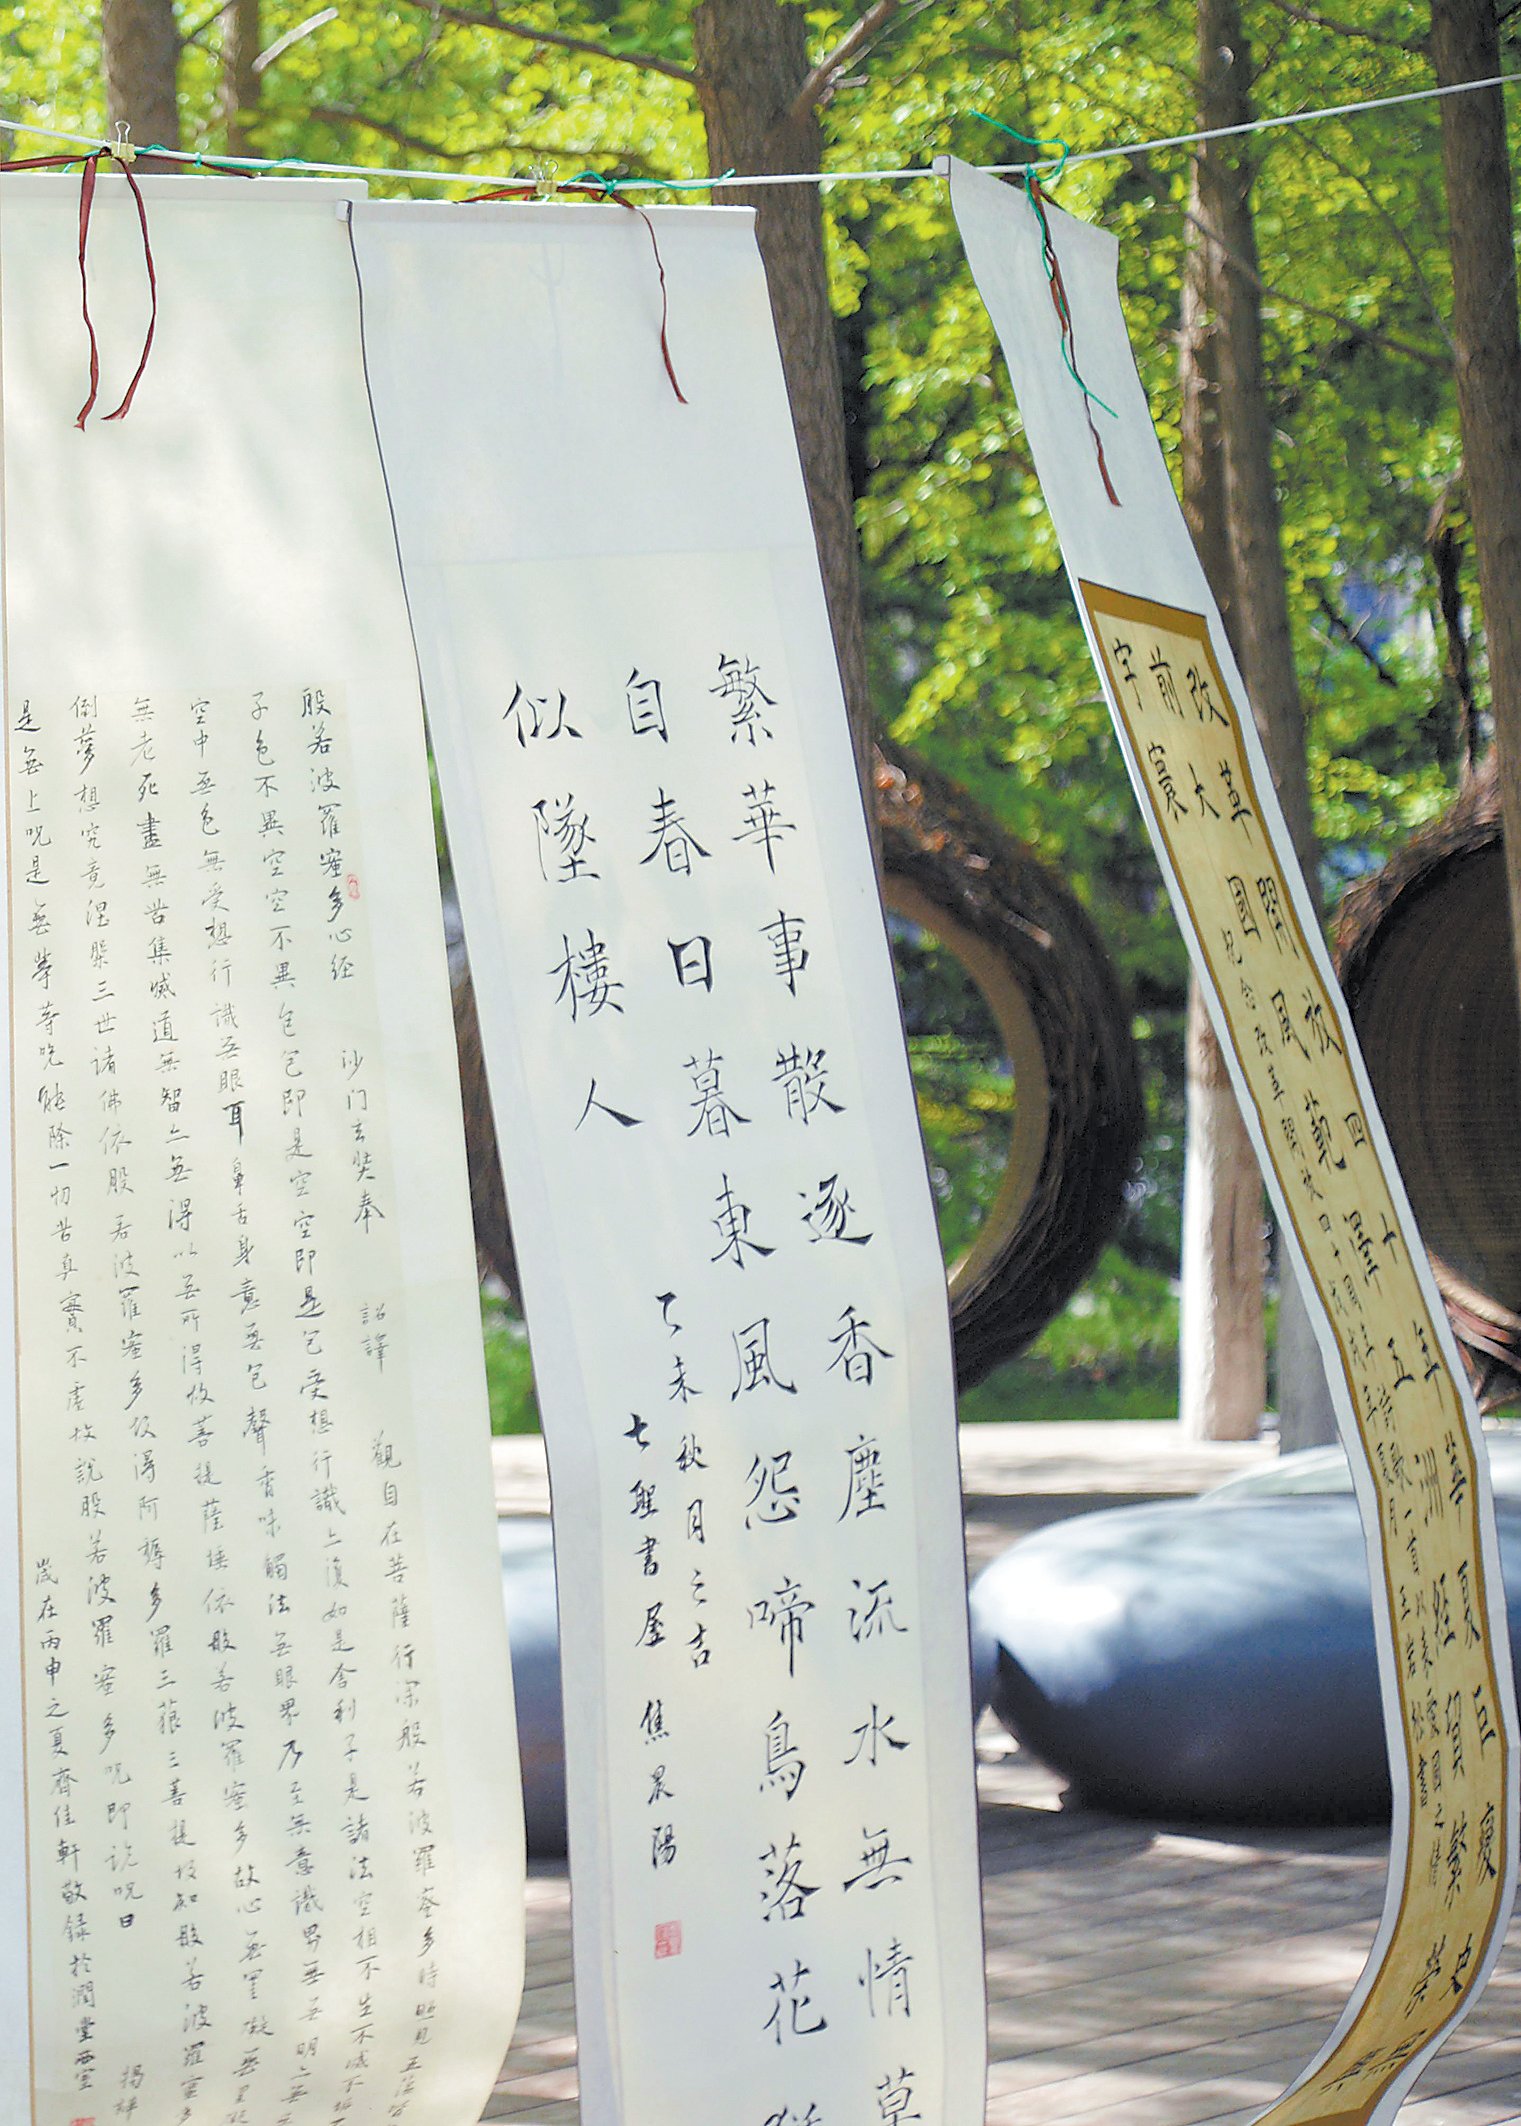 改革開放四十年華夏巨變史
前大國風範五洲經貿繁榮
宇寰
紀念改革開放四十周年詩歌一首以表愛國之情
戊戌年夏月 王岩於
繁華事散逐香塵流水無情草
自春日暮東風怨啼鳥落花
似墜樓人
乙未秋月之吉
七聖書屋 焦晨陽
般若波羅蜜多心經 沙门玄奘奉 詔譯 觀自在菩薩行深般若波羅蜜多時照見五蘊皆
子色不異空空不異色色即是空空即是色受想行識亦復如是舍利子是諸法空相不生不滅不垢
空中無色無受想行識无眼耳鼻舌身意無色聲香味觸法無眼界乃至無意識界無無明亦無
無老死盡無苦集滅道無智亦無得以无所得故菩提薩埵依般若波羅蜜多故心無罣礙無罣礙
倒夢想究竟涅槃三世諸佛依般若波羅蜜多故得阿耨多羅三藐三菩提故知般若波羅蜜多
是無上呪是無等等呪能除一切苦真實不虛故說般若波羅蜜多呪即說呪曰 揭諦
歲在丙申之夏齊佳軒敬錄於潤堂西室